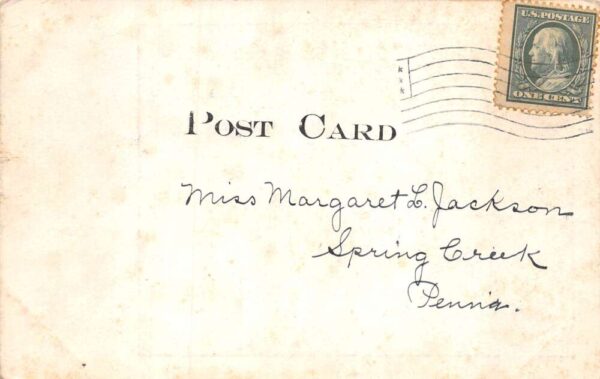 U.S. POSTAGE
ONE CENT
POST CARD
Miss Margaret L. Jackson
Spring Creek
Penn'a.